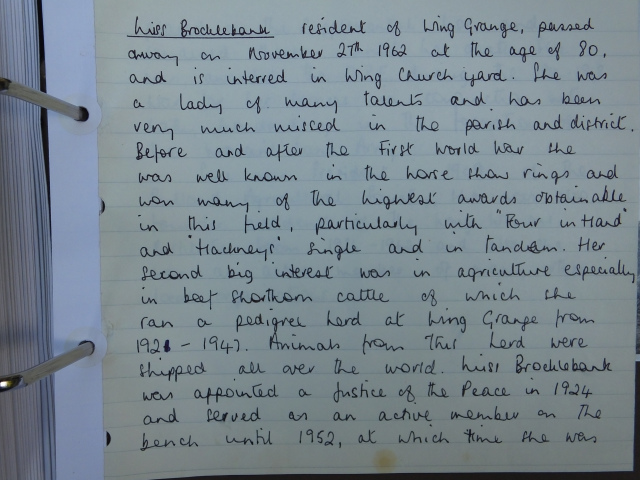 Miss Brocklebank resident of Wing Grange, passed
away on November 27th 1962 at the age of 80,
and is interred in Wing Church yard. She was
a lady of many talents and has been
very much missed in the parish and district.
Before and after the First World War she
was well known in the horse show rings and
won many of the highest awards obtainable
in this field, particularly with "Four in Hand"
and "Hackneys" single and in tandem. Her
second big interest was in agriculture especially
in beef shorthorn cattle of which she
ran a pedigree herd at Wing Grange from
1921 - 1947. Animals from this herd were
shipped all over the world. Miss Brocklebank
was appointed a Justice of the Peace in 1924
and served as an active member on the
bench until 1952, at which time she was